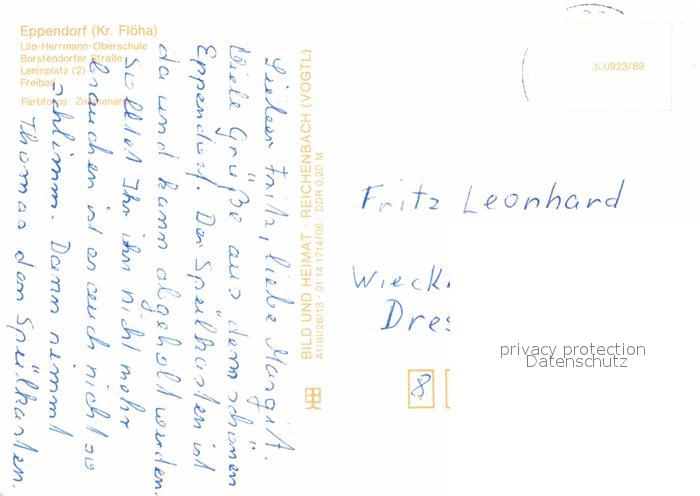 Eppendorf (Kr. Flöha)
Lilo-Herrmann-Oberschule
Borstendorfer Straße
Leninplatz (2)
Freibad
Farbfotos:
Lieber Fritz, liebe Margit.
Viele Grüße aus dem schönen
Eppendorf. Der Spülkasten ist
da und kann abgeholt werden.
Solltet Ihr ihn nicht mehr
brauchen ist es auch nicht so
schlimm. Dann nimmt
Thomas den Spülkasten.
BILD UND HEIMAT · REICHENBACH (VOGTL)
A1/III/26/13 · 01 14 1714/06 · DDR 0,20 M
300923/89
Fritz Leonhard
Wieck
Dres
8
privacy protection
Datenschutz